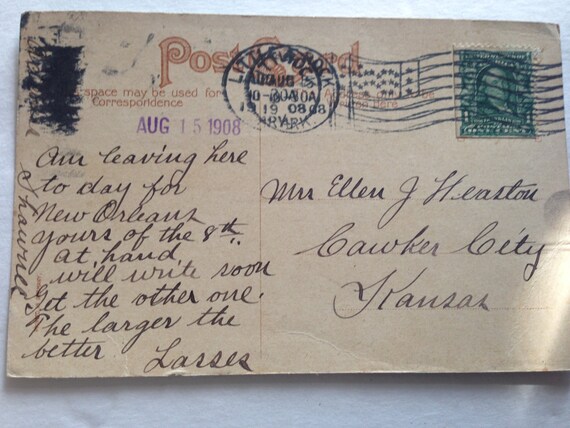 Post Card
space may be used for
Correspondence
LITTLE ROCK
AUG
10-30A
1908
ARK.
AUG 15 1908
Am leaving here
to day for
New Orleans
yours of the 8th
at hand,
will write soon
Get the other one.
The larger the
better
Larses
Mrs Ellen J Heaston
Cawker City
Kansas